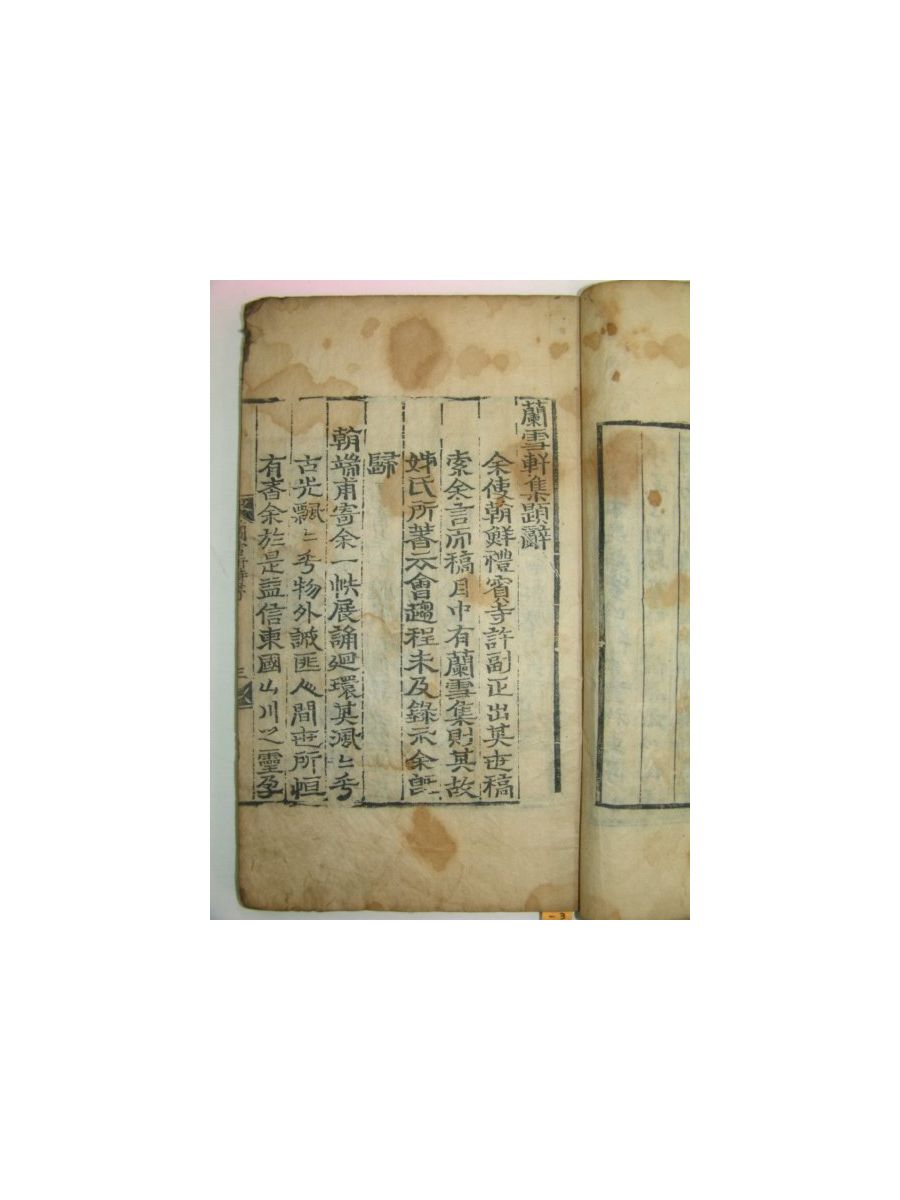 蘭雪軒集題辭
余使朝鮮禮賓寺許副正出其世稿
索余言而稿目中有蘭雪集則其故
姊氏所著云會趲程未及錄示余旣
歸
朝端甫寄余一帙展誦廻環其渢〻乎
古光飄〻乎物外誠匪人間世所恒
有者余於是益信東國山川之靈孕
三
-3